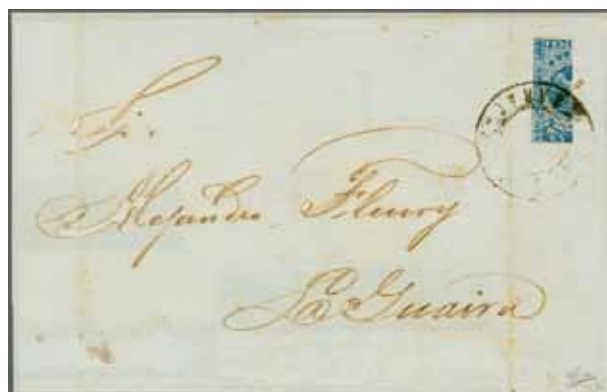 Sr.
Alejandro Fleury
La Guaira